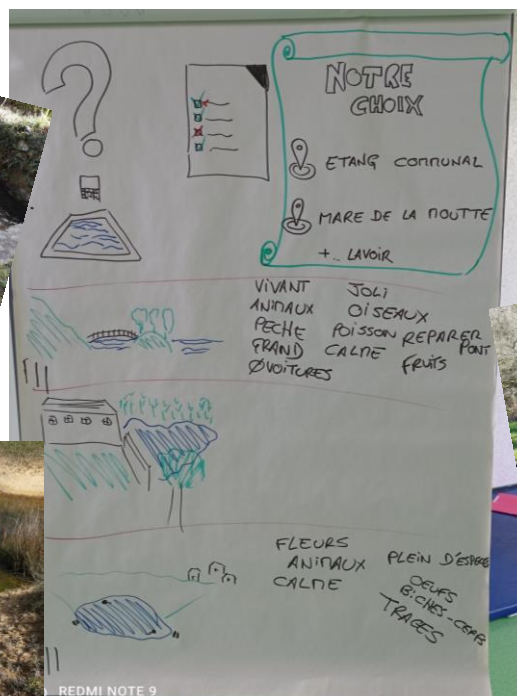 ?
NOTRE
CHOIX
ETANG COMMUNAL
MARE DE LA MOUTTE
+... LAVOIR
VIVANT JOLI
ANIMAUX OISEAUX
PECHE POISSON REPARER
GRAND CALME PONT
ØVOITURES FRUITS
FLEURS
ANIMAUX PLEIN D'ESPACE
CALME OEUFS
BICHES-CERFS
TRACES
REDMI NOTE 9